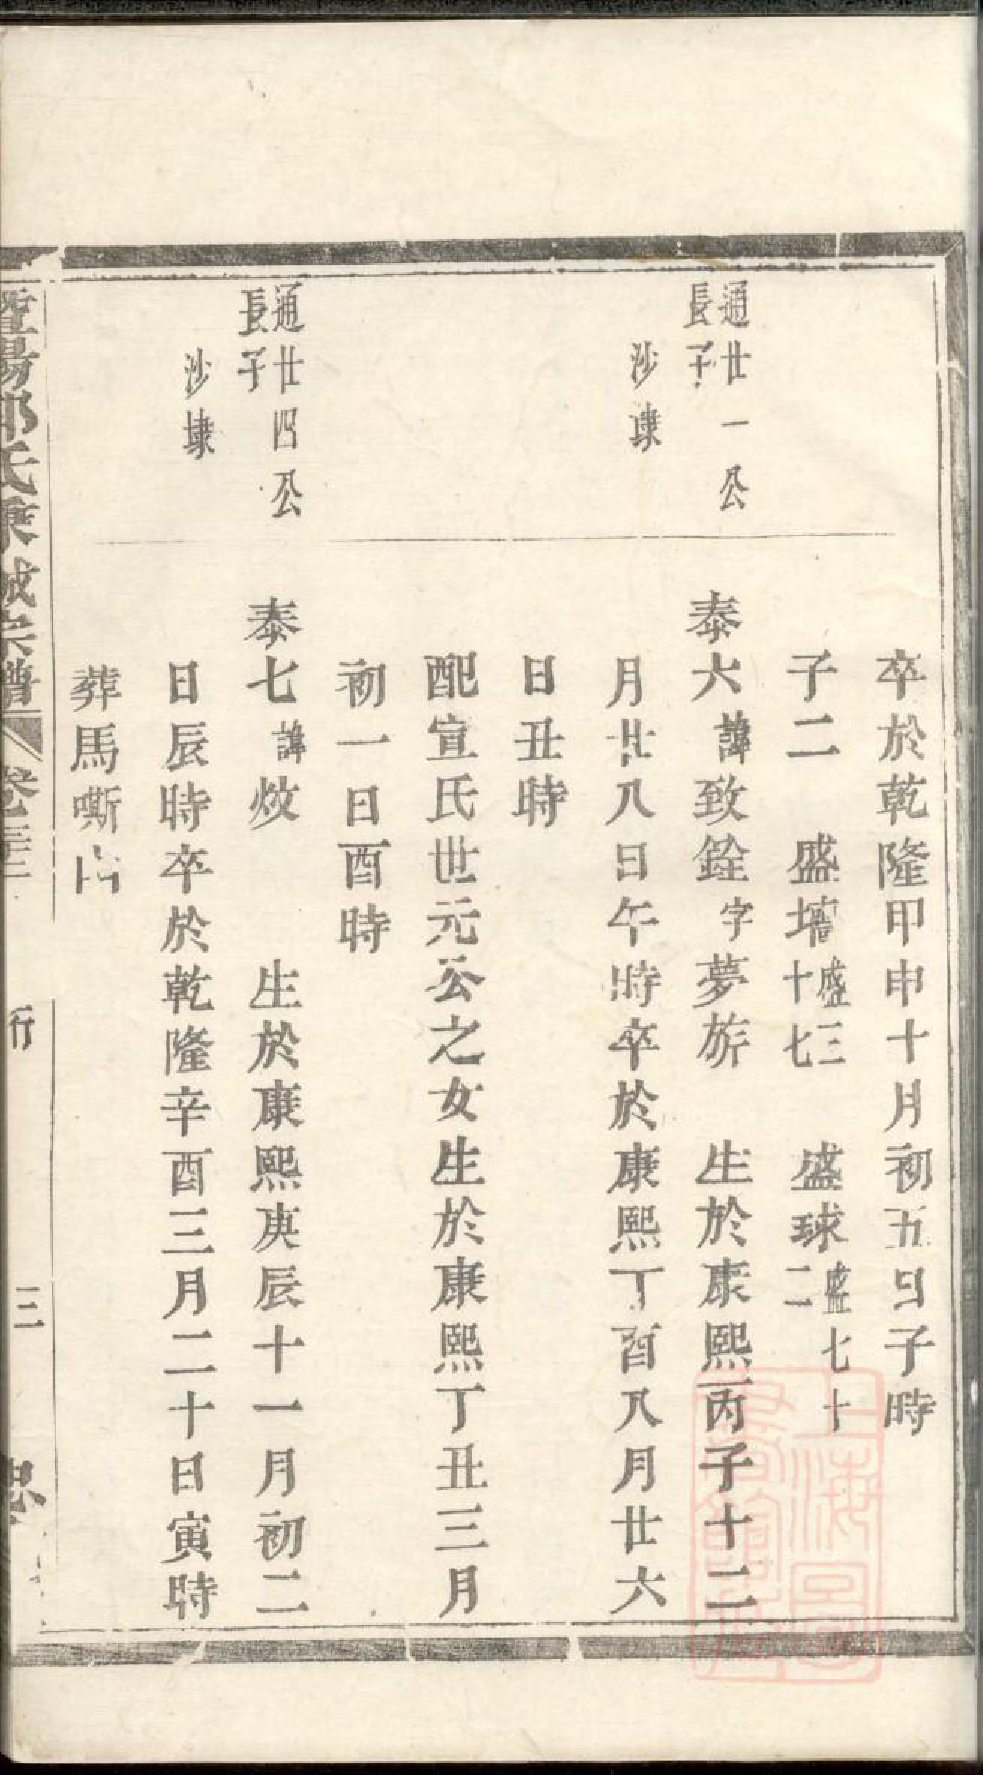 卒於乾隆甲申十月初五日子時
子二 盛墻盛三十七 盛球盛七十二
通廿一公
長子
沙埭
泰六諱致銓字夢旂 生於康熙丙子十二
月廿八日午時卒於康熙丁酉八月廿六
日丑時
配宣氏世元公之女生於康熙丁丑三月
初一日酉時
通廿四公
長子
沙埭
泰七諱炆 生於康熙庚辰十一月初二
日辰時卒於乾隆辛酉三月二十日寅時
葬馬嘶山
暨陽邱氏乘誠宗譜 卷 行 三 忠
上海圖書館藏